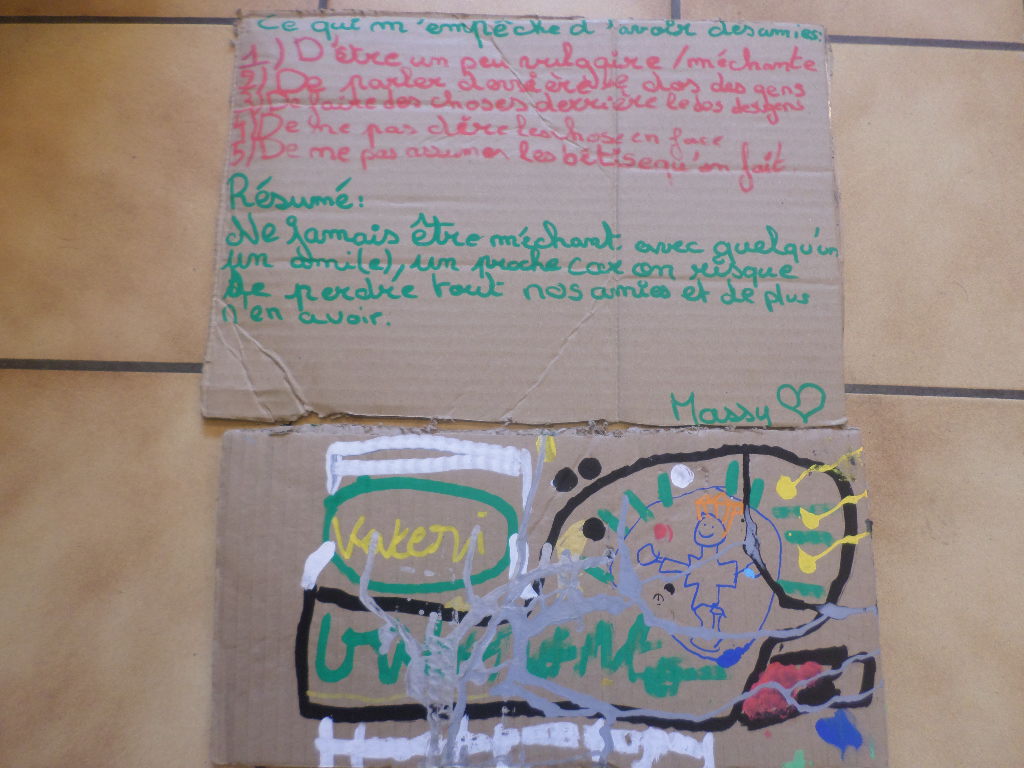 Ce qui m'empêche d'avoir des amies:
1) D'être un peu vulgaire / méchante
2) De parler derière le dos des gens
3) De faire des choses derrière le dos des gens
4) De ne pas dire les chose en face
5) De ne pas assumer les bêtises qu'on fait
Résumé:
Ne jamais être méchant avec quelqu'un
un ami(e), un proche car on risque
de perdre tout nos amies et de plus
n'en avoir.
Massy